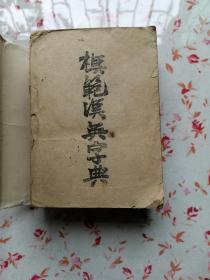 模範漢英字典